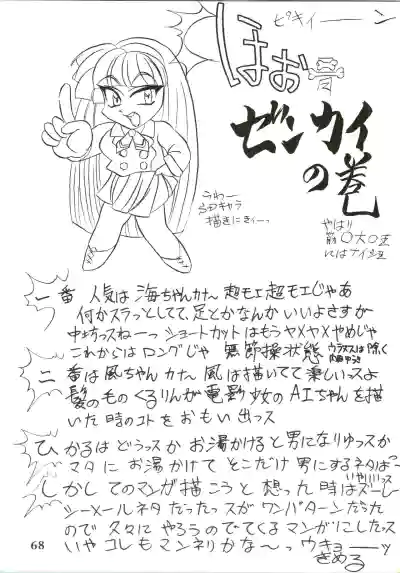 ピキィーーン
ほお骨
ゼンカイ
の巻
うわー
CLAMPキャラ
描きにきぃーっ
やは!!
筋〇大〇正
にはナイショ
一番 人気は 海ちゃんカナー 超モエ超モエじゃあ
何かスラっとしてて、足とかなんか いいよさすが
中坊っスねーっ ショートカットはもうヤメヤメやめじゃ
これからは ロングじゃ 無節操状態 ウラヌスは除く
二番は風ちゃん カナー 風は描いてて楽しいっスよ
髪の毛のくるりんが電影少女のAIちゃんを描
いた時のコトを おもい出っス
ひかるは どうっスか お湯かけると男になりゅっスか
マタに お湯かけて そこだけ 男にするネタは"
いや!!!!っス
しかし てのマンガ描こうと 想った時はズーレー
シーメールネタ だったっスが ワンパターンだったん
ので 久々に やろうのでてくるマンガにしたっス
いや コレも マンネリかな〜っ ウキョーーッ
きめる
68